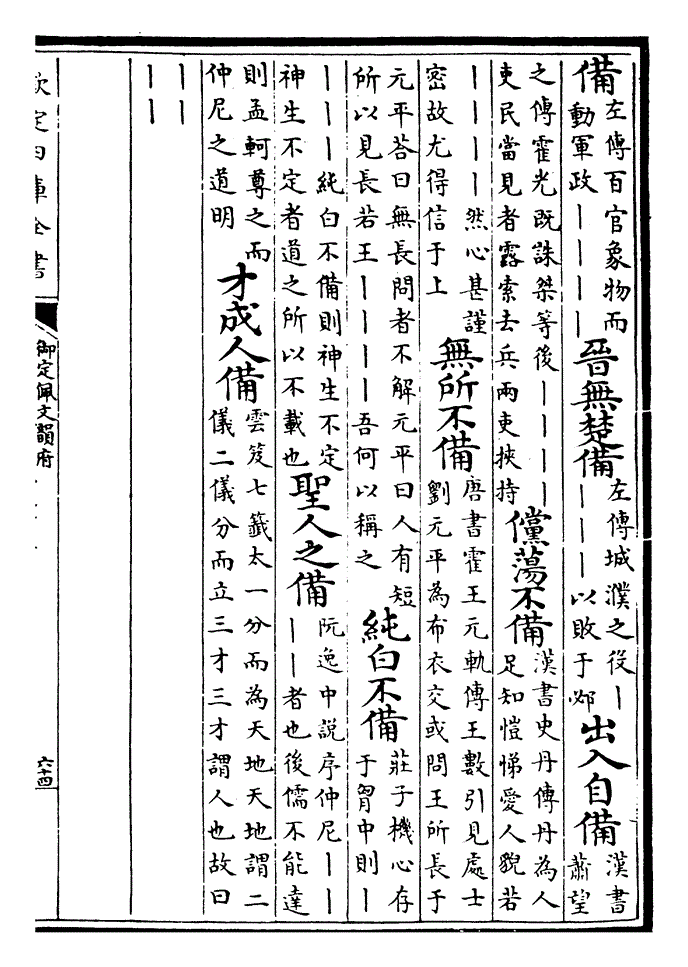 備
左傳百官象物而
動軍政丨丨丨丨
晉無楚備
左傳城濮之役丨
丨丨丨以敗于邲
出入自備
漢書
蕭望
之傳霍光既誅桀等後丨丨丨丨
吏民當見者露索去兵兩吏挾持
儻蕩不備
漢書史丹傳丹為人
足知愷悌愛人貌若
丨丨丨丨然心甚謹
密故尤得信于上
無所不備
唐書霍王元軌傳王數引見處士
劉元平為布衣交或問王所長于
元平荅曰無長問者不解元平曰人有短
所以見長若王丨丨丨丨吾何以稱之
純白不備
莊子機心存
于胷中則丨
丨丨丨純白不備則神生不定
神生不定者道之所以不載也
聖人之備
阮逸中說序仲尼丨丨
丨丨者也後儒不能達
則孟軻尊之而
仲尼之道明
才成人備
雲笈七籤太一分而為天地天地謂二
儀二儀分而立三才三才謂人也故曰
丨丨
丨丨
欽定四庫全書
御定佩文韻府
六十四